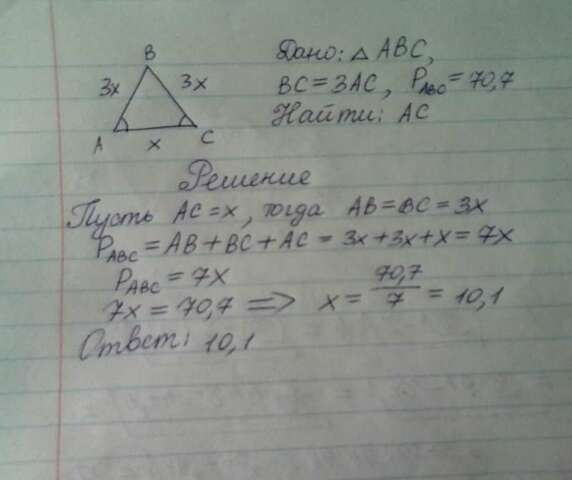 B
3x 3x
A C
x
Дано: △ ABC,
BC = 3AC, P_ABC = 70,7
Найти: AC
Решение
Пусть AC = x, тогда AB = BC = 3x
P_ABC = AB + BC + AC = 3x + 3x + x = 7x
P_ABC = 7x
7x = 70,7 => x = 70,7/7 = 10,1
Ответ: 10,1